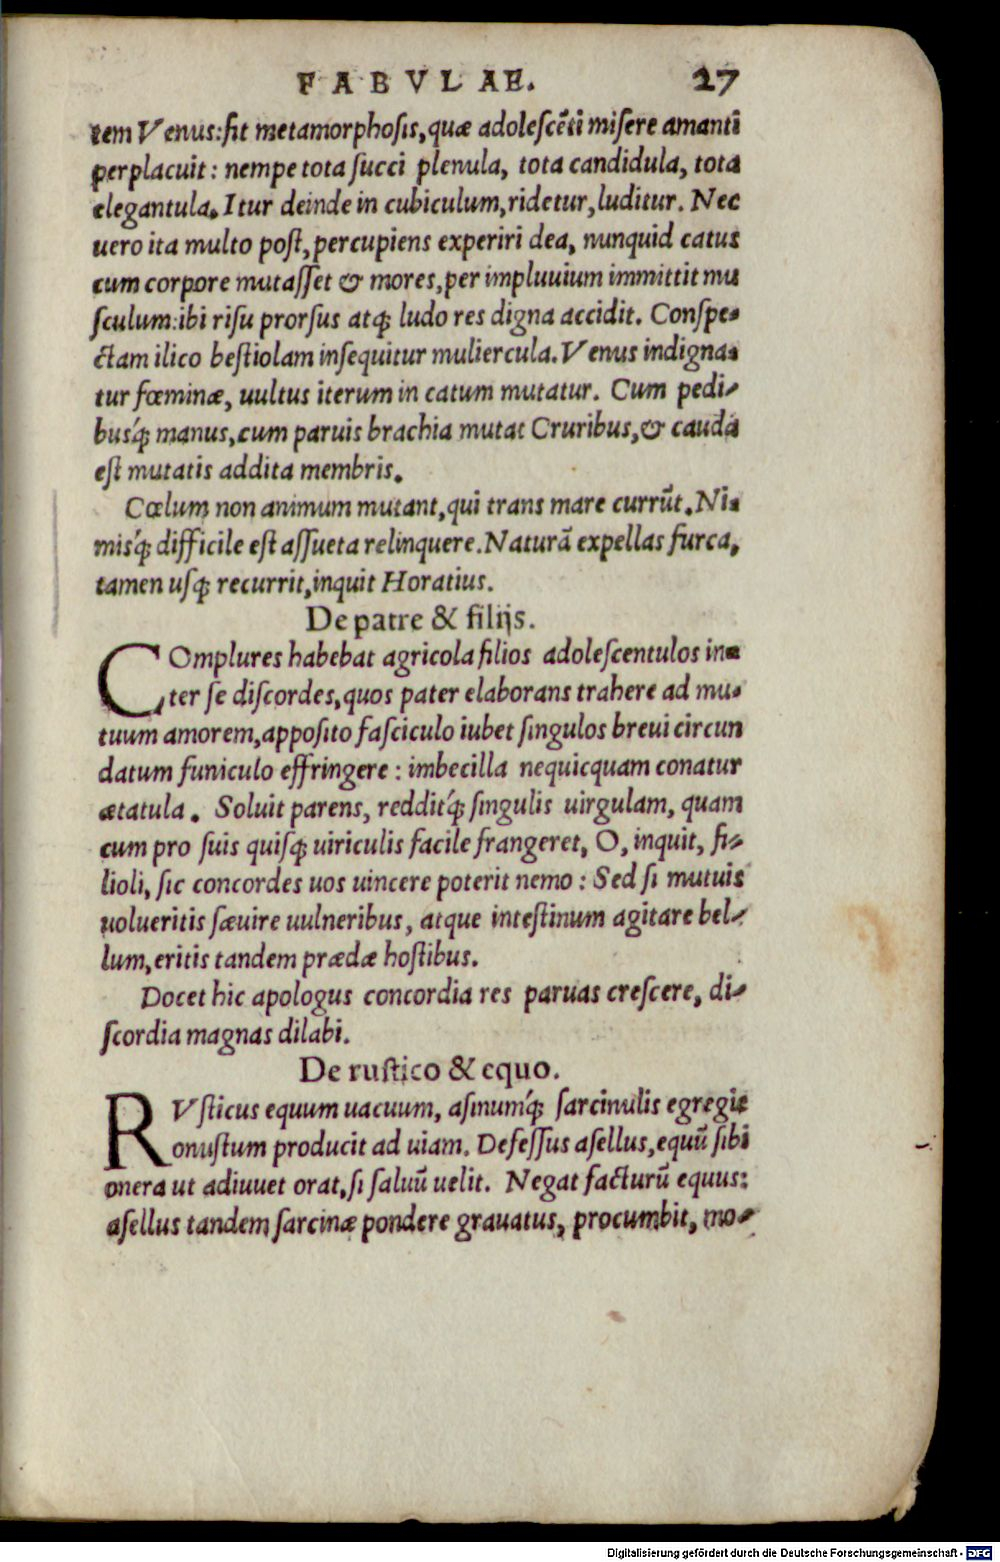 FABVLAE. 27
tem Venus: fit metamorphoſis, quæ adoleſcẽti miſere amanti
perplacuit: nempe tota ſucci plenula, tota candidula, tota
elegantula. Itur deinde in cubiculum, ridetur, luditur. Nec
uero ita multo poſt, percupiens experiri dea, nunquid catus
cum corpore mutaſſet & mores, per impluuium immittit mu
ſculum: ibi riſu prorſus atq; ludo res digna accidit. Conſpe-
ctam ilico beſtiolam inſequitur muliercula. Venus indigna-
tur fœminæ, uultus iterum in catum mutatur. Cum pedi-
buſq́; manus, cum paruis brachia mutat Cruribus, & cauda
eſt mutatis addita membris.
Cœlum non animum mutant, qui trans mare currũt. Ni-
miſq́; difficile eſt aſſueta relinquere. Naturã expellas furca,
tamen uſq; recurrit, inquit Horatius.
De patre & filijs.
COmplures habebat agricola filios adoleſcentulos in-
ter ſe diſcordes, quos pater elaborans trahere ad mu-
tuum amorem, appoſito faſciculo iubet ſingulos breui circun
datum funiculo effringere: imbecilla nequicquam conatur
ætatula. Soluit parens, redditq́; ſingulis uirgulam, quam
cum pro ſuis quiſq; uiriculis facile frangeret, O, inquit, fi-
lioli, ſic concordes uos uincere poterit nemo: Sed ſi mutuis
uolueritis ſæuire uulneribus, atque inteſtinum agitare bel-
lum, eritis tandem prædæ hoſtibus.
Docet hic apologus concordia res paruas creſcere, di-
ſcordia magnas dilabi.
De ruſtico & equo.
RVſticus equum uacuum, aſinumq́; ſarcinulis egregie
onuſtum producit ad uiam. Defeſſus aſellus, equũ ſibi
onera ut adiuuet orat, ſi ſaluũ uelit. Negat facturũ equus:
aſellus tandem ſarcinæ pondere grauatus, procumbit, mo-
Digitalisierung gefördert durch die Deutsche Forschungsgemeinschaft - DFG